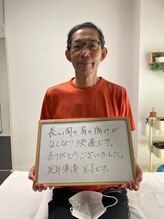 長い間の肩の痛みが
なくなり快適です。
ありがとうございました。
定年準備 完了です。